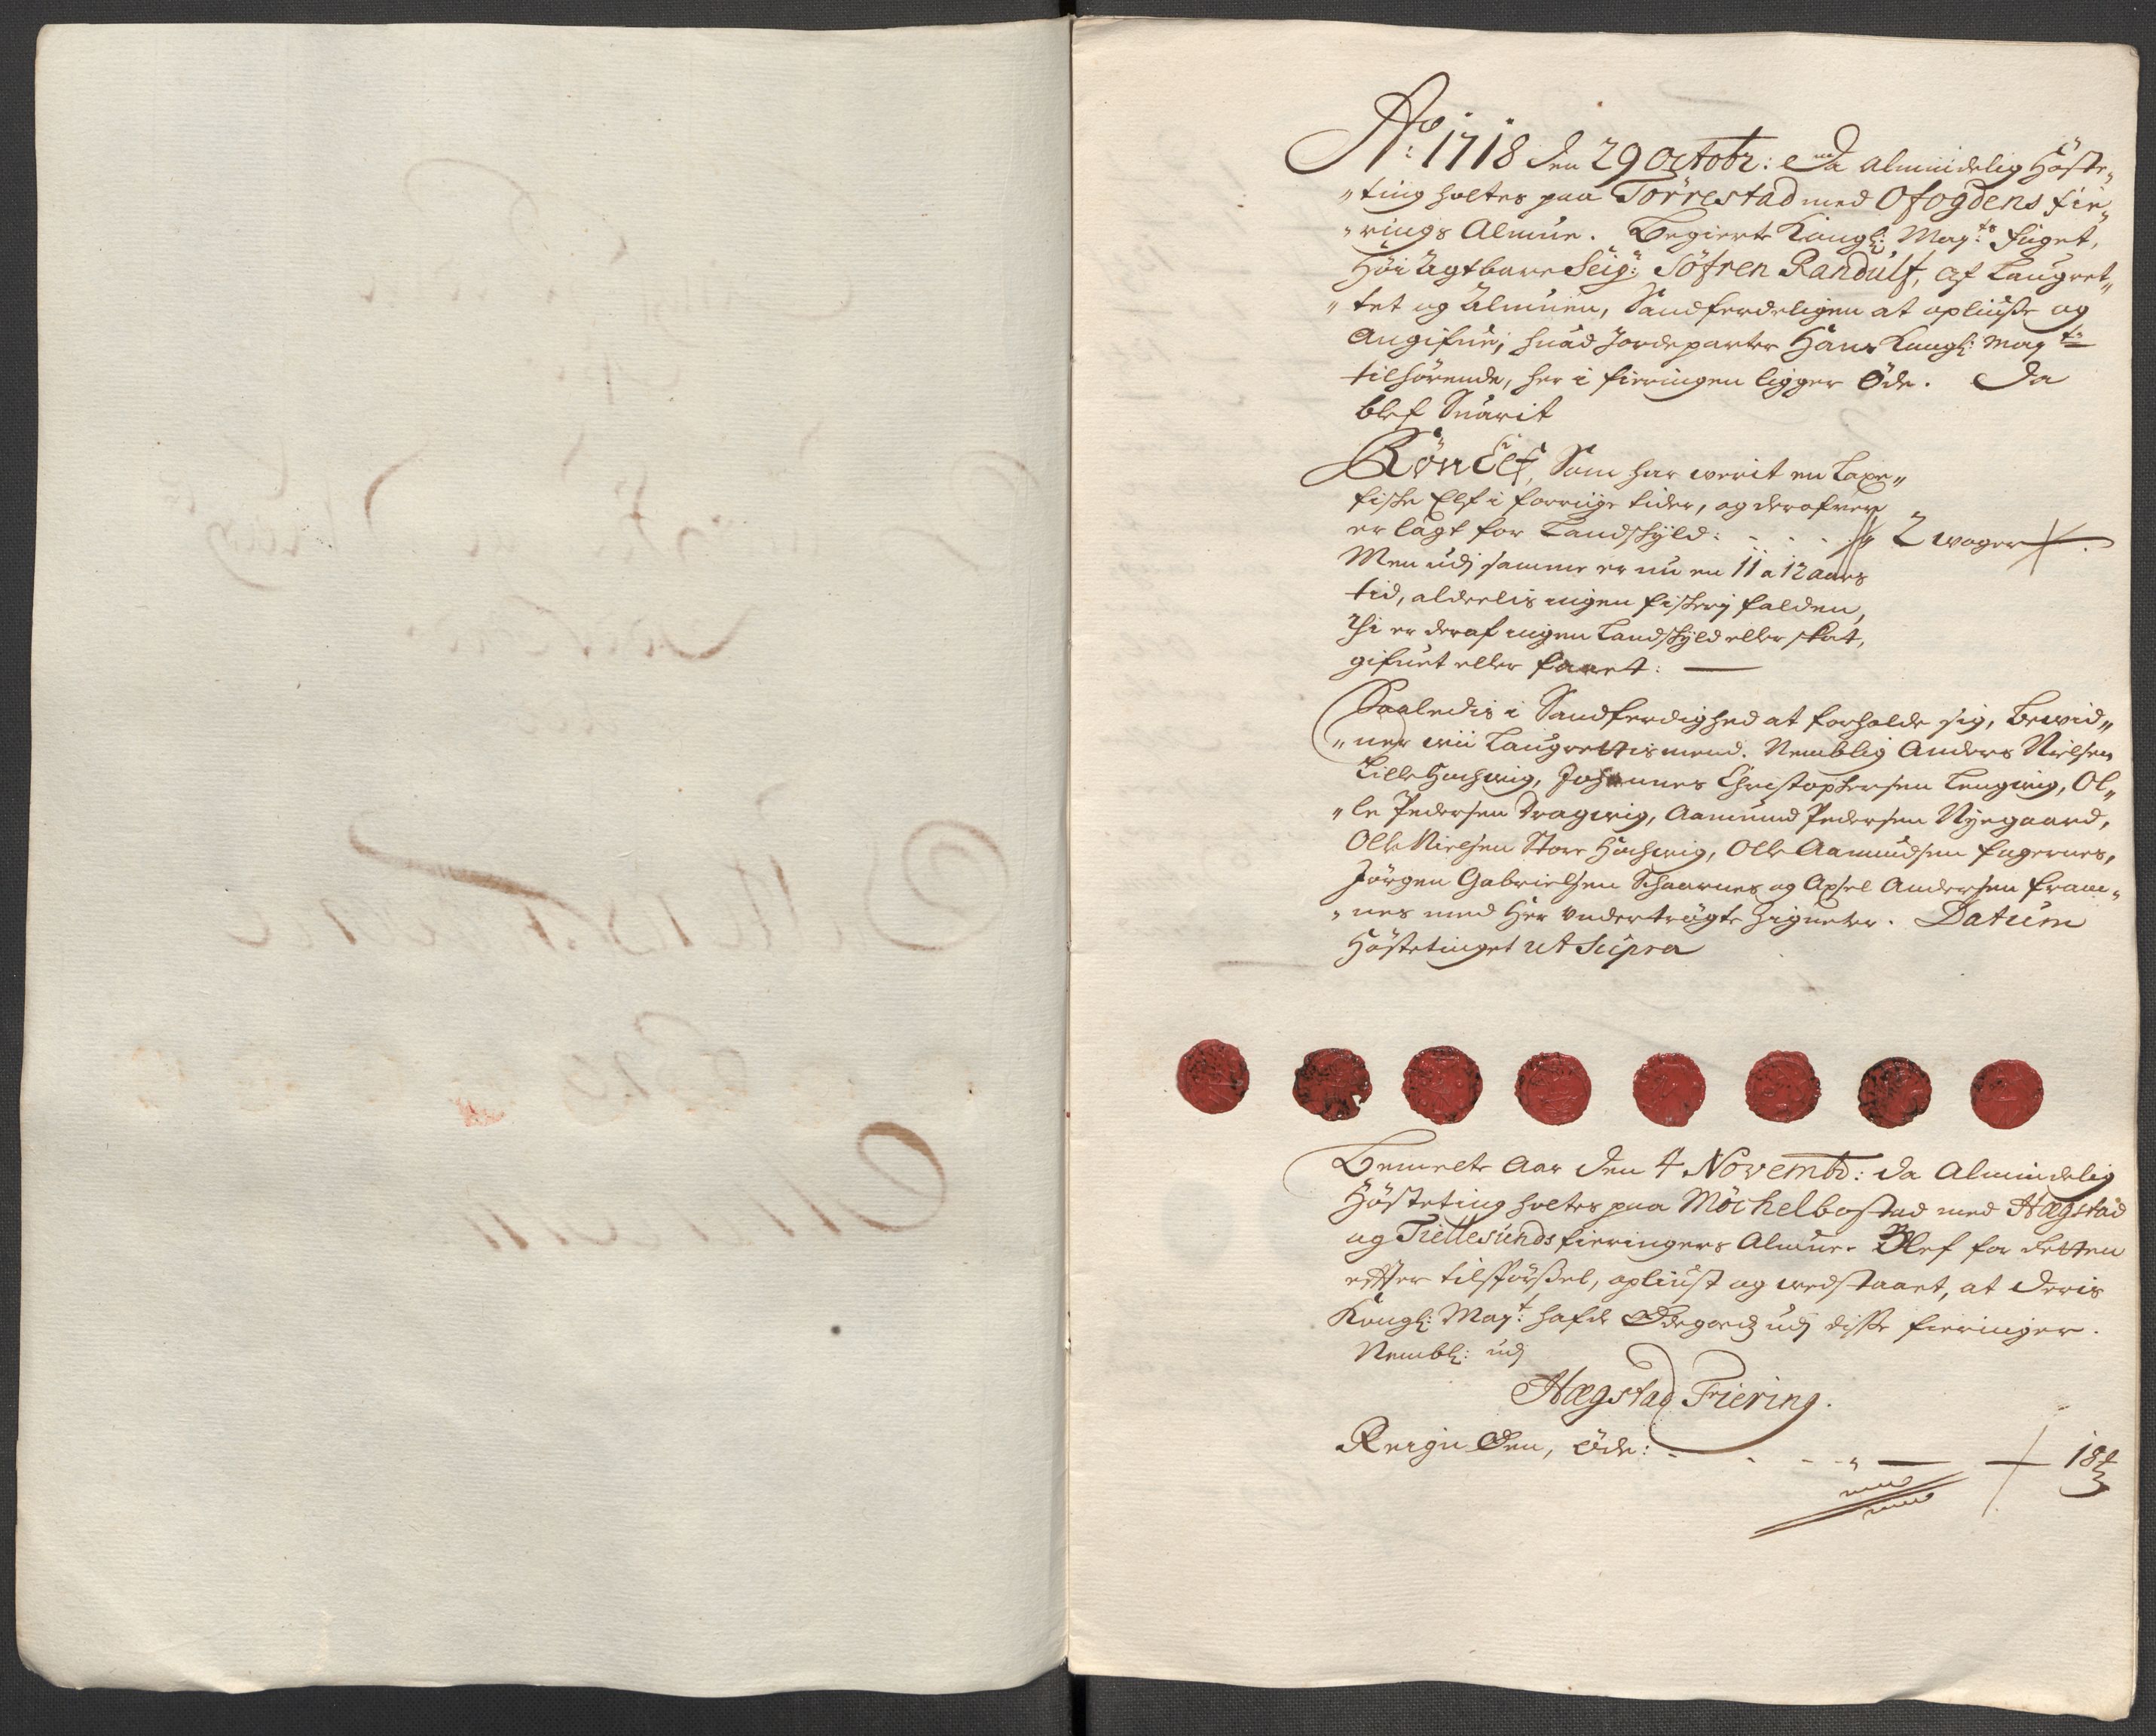 Ao: 1718 den 29 octobr: Da Almindelig Höste„
„ting holtes paa Törrestad med Ofogdens fie„
„rings Almue. Begierte Kongl: Mayts. fuget,
Höi Agtbare Seigr: Söfren Randulf, af Laugret„
„tet og Almuen, Sandferdeligen at opliuse og
Angifue, huad Jordeparter Hans Kongl: Mayts
tilhörende, her i fieringen ligger öde. Da
blef Suarit
Rön Elf, Som har werit en Laxe„
fiske Elf i forrige tider, og deraf
er lagt for Landskyld: . . . 2 woger
Men udj samme er nu en 11 a 12 aars
tid, alderlis ingen fiskerj falden,
Thi er deraf ingen Landskyld eller skat,
gifuet eller faaet.
Saaledis i Sandferdighed at forholde sig, bewid„
„ner wii Laugrettismend. Nemblig Anders Nielsen
Lille Hachwig, Johannes Christophersen Lengwig, Ol„
„le Pedersen Dragwig, Aamund Pedersen Nygaard,
Olle Nielsen Store Hachwig, Olle Aamundsen fagernes,
Jörgen Gabrielsen Schaarnes og Axsel Andersen fram„
„nes med Her undertrögte Zigneter. Datum
Höstetinget ut Supra
Bemelte Aar den 4 Novembr: da Almindelig
Hösteting holtes paa Möchelbostad med Hægstad
og Tiellesunds fieringers Almue. Blef for Retten
effter tilspörsel, opliust og wedstaaet, at Deris
Kongl: Mayt: hafde Ödegods udj disse fieringer.
Nembl: udj
Hægstad Fiering.
Reign Öen, öde: . . . 18